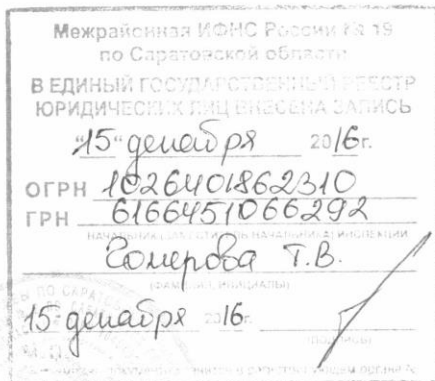 Межрайонная ИФНС России № 19
по Саратовской области
В ЕДИНЫЙ ГОСУДАРСТВЕННЫЙ РЕЕСТР
ЮРИДИЧЕСКИХ ЛИЦ ВНЕСЕНА ЗАПИСЬ
"15" декабря 2016г.
ОГРН 1026401862310
ГРН 6166451066292
НАЧАЛЬНИК (ЗАМЕСТИТЕЛЬ НАЧАЛЬНИКА) ИНСПЕКЦИИ
Гомерова Т.В.
(ФАМИЛИЯ, ИНИЦИАЛЫ)
15 декабря 2016г.
(ПОДПИСЬ)